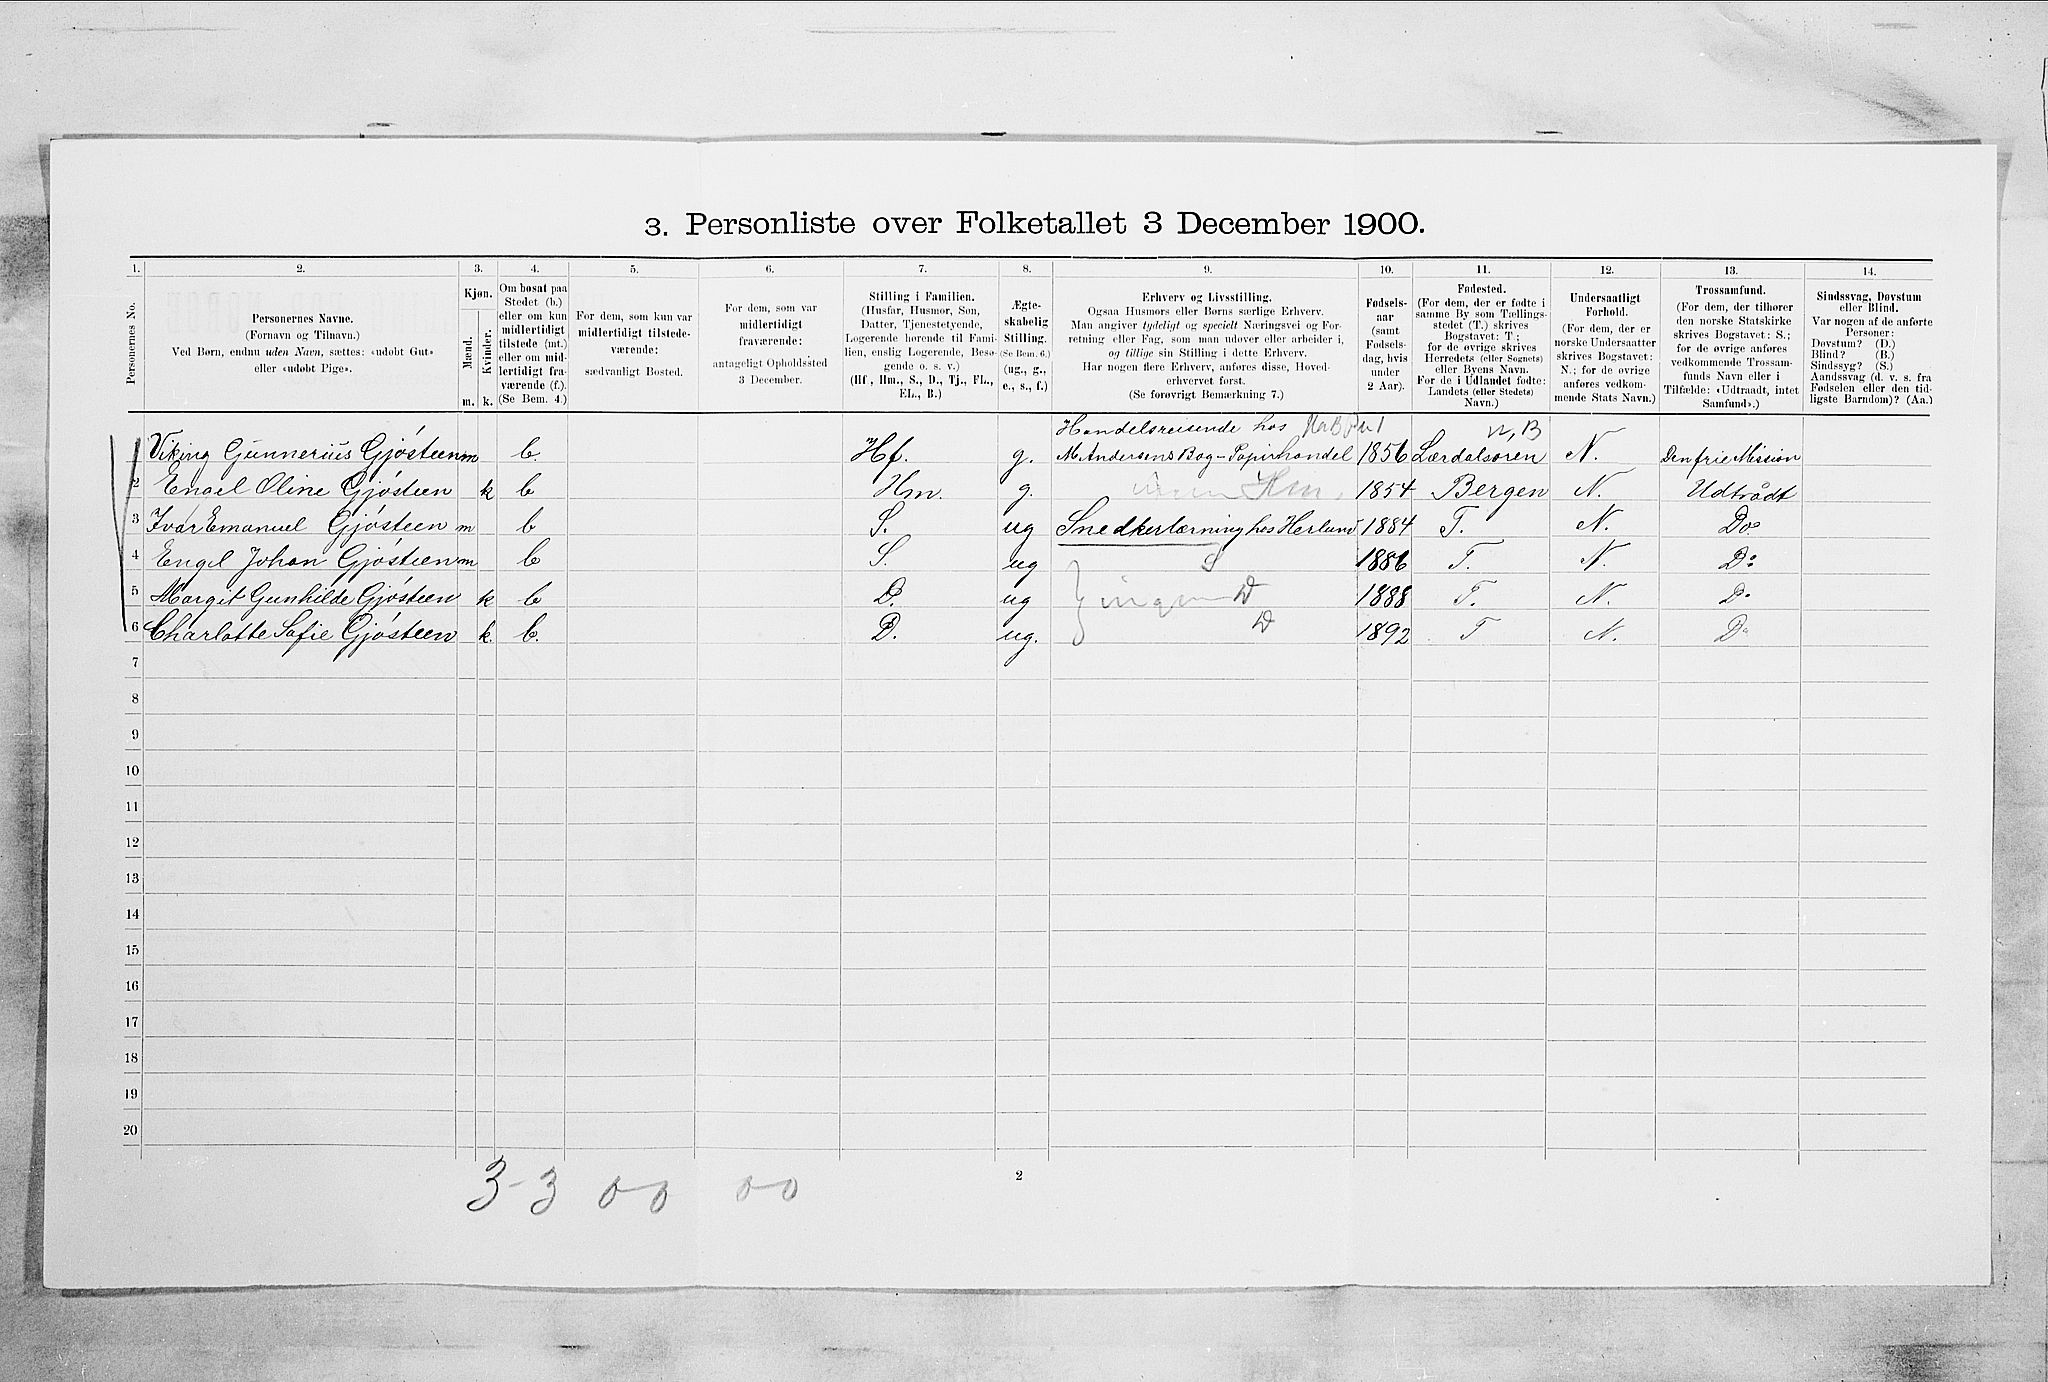 3. Personliste over Folketallet 3 December 1900.
1. 2. 3. 4. 5. 6. 7. 8. 9. 10. 11. 12. 13. 14.
Personernes No.
Personernes Navne.
(Fornavn og Tilnavn.)
Ved Børn, endnu uden Navn, sættes: «udøbt Gut»
eller «udøbt Pige».
Kjøn.
Mænd.
Kvinder.
m. k.
Om bosat paa
Stedet (b.)
eller om kun
midlertidigt
tilstede (mt.)
eller om mid-
lertidigt fra-
værende (f.).
(Se Bem. 4.)
For dem, som kun var
midlertidigt tilstede-
værende:
sædvanligt Bosted.
For dem, som var
midlertidigt
fraværende:
antageligt Opholdssted
3 December.
Stilling i Familien.
(Husfar, Husmor, Søn,
Datter, Tjenestetyende,
Logerende hørende til Fami-
lien, enslig Logerende, Besø-
gende o. s. v.)
(Hf., Hm., S., D., Tj., FL.,
EL., B.)
Ægte-
skabelig
Stilling.
(Se Bem. 6.)
(ug., g.,
e., s., f.)
Erhverv og Livsstilling.
Ogsaa Husmors eller Børns særlige Erhverv.
Man angiver tydeligt og specielt Næringsvei og For-
retning eller Fag, som man udøver eller arbeider i,
og tillige sin Stilling i dette Erhverv.
Har nogen flere Erhverv, anføres disse, Hoved-
erhvervet først.
(Se forøvrigt Bemærkning 7.)
Fødsels-
aar
(samt
Fødsels-
dag, hvis
under
2 Aar).
Fødested.
(For dem, der er fødte i
samme By som Tællings-
stedet (T.) skrives
Bogstavet: T;
for de øvrige skrives
Herredets (eller Sognets)
eller Byens Navn.
For de i Udlandet fødte:
Landets (eller Stedets)
Navn.)
Undersaatligt
Forhold.
(For dem, der er
norske Undersaatter
skrives Bogstavet:
N.; for de øvrige
anføres vedkom-
mende Stats Navn.)
Trossamfund.
(For dem, der tilhører
den norske Statskirke
skrives Bogstavet: S.;
for de øvrige anføres
vedkommende Trossam-
funds Navn eller i
Tilfælde: «Udtraadt, intet
Samfund».)
Sindssvag, Døvstum
eller Blind.
Var nogen af de anførte
Personer:
Døvstum? (D.)
Blind? (B.)
Sindssyg? (S.)
Aandssvag (d. v. s. fra
Fødselen eller den tid-
ligste Barndom)? (Aa.)
Handelsreisende hos
Viking Gunnerius Gjøsteen m b. Hf. g. M. Andersens Bog-Papirhandel 1856 Lærdalsøren N. Den frie Mission
2 Engel Oline Gjøsteen k b Hm. g. Hm. 1854 Bergen N. Udtrådt
3 Ivar Emanuel Gjøsteen m b S. ug Snedkerlærning hos Herlund 1884 T. N. Do
4 Engel Johan Gjøsteen m b S. ug S 1886 T. N. Do
5 Margit Gunhilde Gjøsteen k b D. ug D 1888 T. N. Do
6 Charlotte Sofie Gjøsteen k. b. D. ug. D 1892 T N. Do
7
8
9
10
11
12
13
14
15
16
17
18
19
20
3-3 0-0 0-0
2